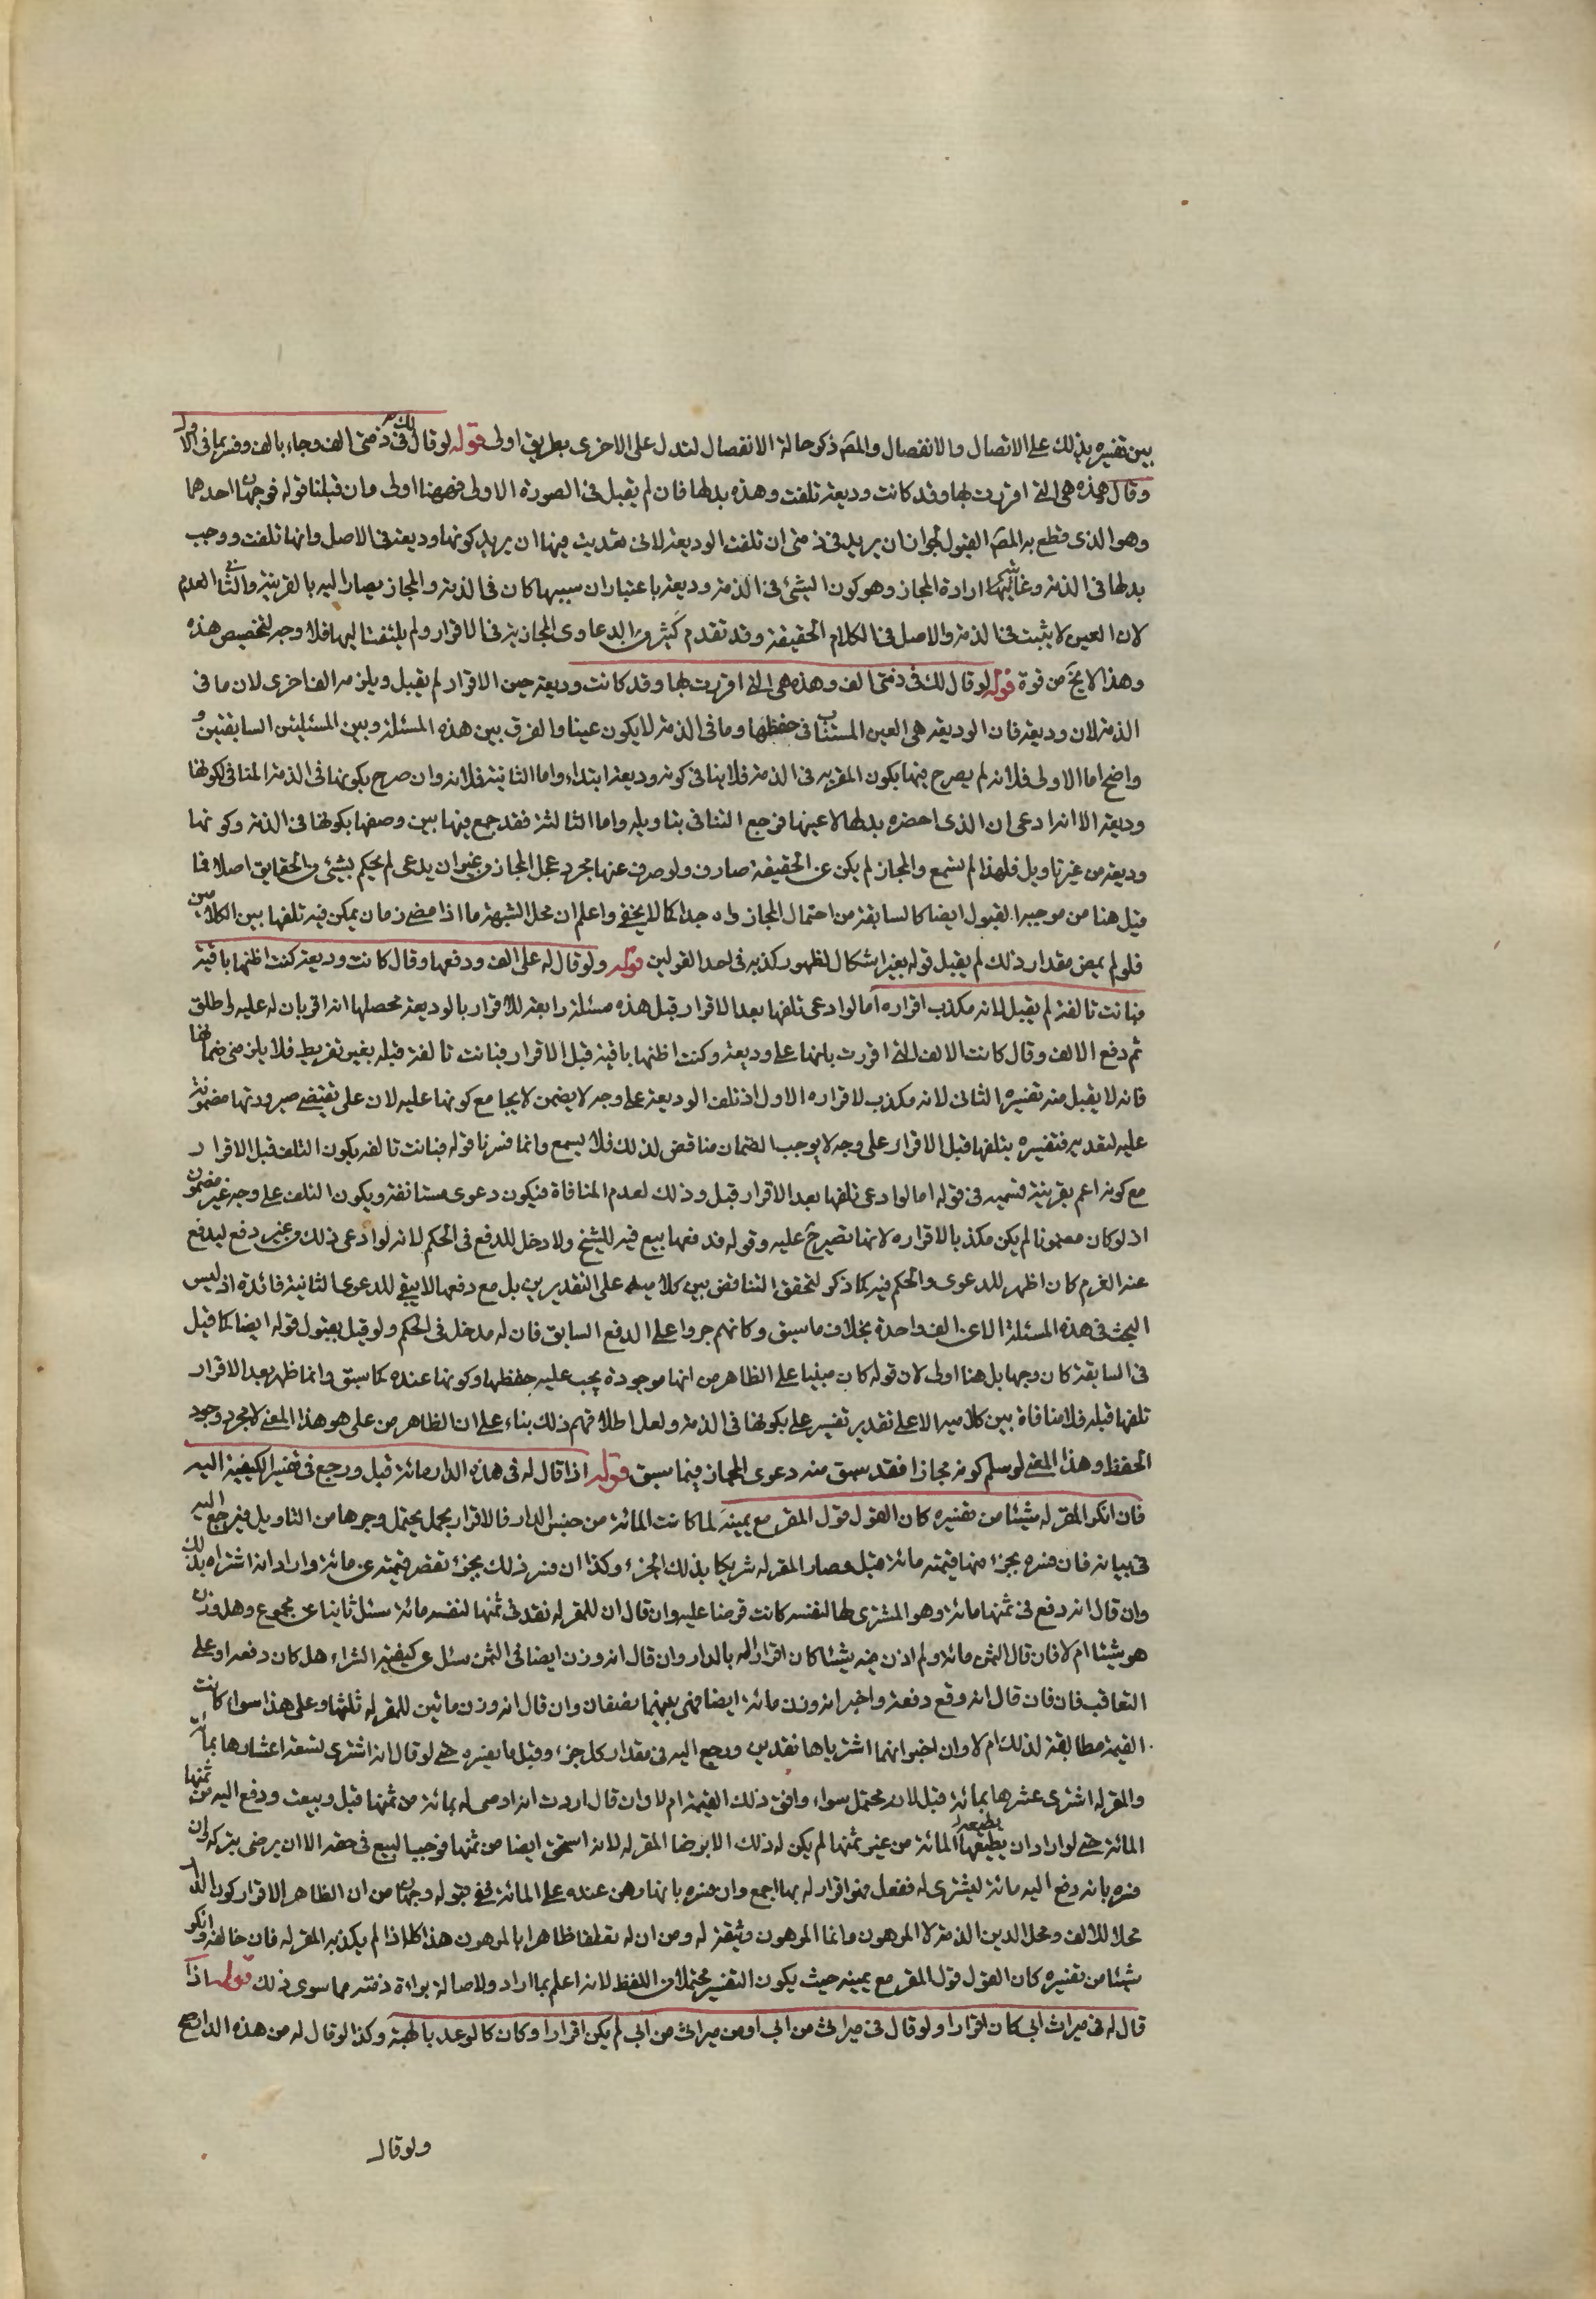 بين تفسيره بذلك على الاتصال والانفصال والمصّ ذكر حالة الانفصال لتدل على الاخرى بطريق اولى قوله لو قال لك فى ذمتى الف وجاء بالف وفسر بما فى الاول
وقال هذه هى التى اقررت بها وقد كانت وديعة تلفت وهذه بدلها فان لم يقبل فى الصورة الاولى فههنا اولى وان قبلنا قوله فوجهان احدهما
وهو الذى قطع به المصّ القبول لجواز ان يريد فى ذمتى ان تلفت الوديعة لانى تعديت فيها ان يريد كونها وديعة فى الاصل وانها تلفت ووجب
بدلها فى الذمة وغايتها ارادة المجاز وهو كون الشئ فى الذمة وديعة باعتبار ان سببها كان فى الذمة والمجاز يصار اليه بالقرينة والثانى العدم
لان العين لا يثبت فى الذمة والاصل فى الكلام الحقيقة وقد تقدم كثير من الدعاوى المجازية فى الاقرار ولم يلتفت اليها فلا وجه لتخصيص هذه
وهذا لا يخ من قوة قوله لو قال لك فى ذمتى الف وهذه هى التى اقررت بها وقد كانت وديعة حين الاقرار لم يقبل ويلزمه الف اخرى لان ما فى
الذمة لان وديعة فان الوديعة هى العين المستناب فى حفظها وما فى الذمة لا يكون عينا والفرق بين هذه المسئلة وبين المسئلتين السابقتين و
واضح اما الاولى فلانه لم يصرح فيها بكون المقر به فى الذمة فلا ينافى كونه وديعة ابتداء واما الثانية فلانه وان صرح بكونها فى الذمة المنافى لكونها
وديعة الا انه ادعى ان الذى احضره بدلها لا عينها فرجع التنافى بتاويله واما الثالثة فقد جمع فيها بين وصفها بكونها فى الذمة وكونها
وديعة من غير تاويل فلهذا لم تسمع والمجاز لم يكن عن الحقيقة صارف ولو صرف عنها مجرد عمل المجاز من غير ان يدعى لم يحكم بشئ من الحقايق اصلا فما
قيل هنا من موجبه القبول ايضا كالسابقة من احتمال المجاز واه جدا كما لا يخفى واعلم ان محل الشبهة ما اذا مضى زمان يمكن فيه تلفها بين الكلامين
فلو لم يمض مقدار ذلك لم يقبل قوله بغير اشكال لظهور كذبه فى احد القولين قوله ولو قال له على الف ودفعها وقال كانت وديعة كنت اظنها باقية
فبانت تالفة لم يقبل لانه مكذب اقراره اما لو ادعى تلفها بعد الاقرار قبل هذه مسئلة رابعة للاقرار بالوديعة محصلها انه اقر بان له عليه الف واطلق
ثم دفع الالف وقال كانت الالف التى اقررت بانها على وديعة وكنت اظنها باقية قبل الاقرار فبانت تالفة قبله بغير تفريط فلا يلزمنى ضمانها
فانه لا يقبل منه تفسيره الثانى لانه مكذب لاقراره الاول اذ تلف الوديعة على وجه لا يضمن لا يجامع كونها عليه لان على تقتضى صيرورتها مضمونة
عليه لتقديره فتفسيره بتلفها قبل الاقرار على وجه لا يوجب الضمان مناقض لذلك فلا يسمع وانما فسرنا قوله فبانت تالفة بكون التلف قبل الاقرار
مع كونه اعم بقرينة قسيمه فى قوله اما لو ادعى تلفها بعد الاقرار قبل وذلك لعدم المنافاة فيكون دعوى مستانفة ويكون التلف على وجه غير مضمون
اذ لو كان مضمونا لم يكن مكذبا لاقراره لانها تصير ح عليه وقوله فدفعها بيع فيه للشيخ ولا دخل للدفع فى الحكم لانه لو ادعى ذلك من غير دفع ليدفع
عنه الغرم كان اظهر للدعوى والحكم فيه كما ذكر لتحقق التناقض بين كلاميه على التقديرين بل مع دفعها لا يبقى للدعوى الثانية فائدة اذ ليس
البحث فى هذه المسئلة الا عن الف واحدة بخلاف ما سبق وكانهم جروا على الدفع السابق فان له مدخل فى الحكم ولو قيل بقبول قوله ايضا كما قيل
فى السابقة كان وجها بل هنا اولى لان قوله كان مبنيا على الظاهر من انها موجودة يجب عليه حفظها وكونها عنده كما سبق وانما ظهر بعد الاقرار
تلفها قبله فلا منافاة بين كلاميه الا على تقدير تفسير على بكونها فى الذمة ولعل اطلاقهم ذلك بناء على ان الظاهر من على هو هذا المعنى لا مجرد وجود
الحفظ وهذا المعنى لو سلم كونه مجازا فقد سبق منه دعوى المجاز فيما سبق قوله اذا قال له فى هذه الدار مائة قبل ورجع فى تفسير الكيفية اليه
فان انكر المقر له شيئا من تفسيره كان القول قول المقر مع يمينه لما كانت المائة من جنس الدار فالاقرار مجمل يحتمل وجوها من التاويل فيرجع اليه
فى بيانه فان فسره بجزء منها قيمته مائة قبل وصار المقر له شريكا بذلك الجزء وكذا ان فسر ذلك بجزء تنقص قيمته عن مائة واراد انه اشتراه بذلك
وان قال انه دفع فى ثمنها مائة وهو المشترى لها لنفسه كانت قرضا عليه وان قال ان للمقر له نقد فى ثمنها لنفسه مائة سئل ثانيا عن مجموع وهل وزن
هو شيئا ام لا فان قال الثمن مائة ولم ازن فيه شيئا كان اقرارا له بالدار وان قال انه وزن ايضا فى الثمن سئل عن كيفية الشراء هل كان دفعة او على
التعاقب فان فان قال انه وقع دفعة واخبر انه وزن مائة ايضا فهى بينهما نصفان وان قال انه وزن مائتين للمقر له ثلثها وعلى هذا سواء كانت
القيمة مطابقة لذلك ام لا وان اخبر انهما اشترياها نقدين ورجع اليه فى مقدار كل جزء وقبل ما يفسره حتى لو قال انه اشترى تسعة اعشارها بمائة
والمقر له اشترى عشرها بمائة قبل لانه محتمل سواء وافق ذلك القيمة ام لا وان قال اردت انه اوصى له بمائة من ثمنها قبل وبيعت ودفع اليه من ثمنها
المائة حتى لو اراد ان يعطيه المائة من غير ثمنها لم يكن له ذلك الا برضا المقر له لانه استحق ايضا من ثمنها فوجب البيع فى حقه الا ان يرضى بتركه وان
فسره بانه دفع اليه مائة ليشترى له ففعل فهو اقرار له بها اجمع وان فسره بانها رهن عنده على المائة ففى قبوله وجهان من ان الظاهر الاقرار كون الدار
محلا للالف ومحل الدين الذمة لا المرهون وانما المرهون وثيقة له ومن ان له تعلقا ظاهرا بالمرهون هذا كله اذا لم يكذبه المقر له فان خالفه وانكر
شيئا من تفسيره كان القول قول المقر مع يمينه حيث يكون التفسير محتملا من اللفظ لانه اعلم بما اراد ولاصالة براءة ذمته مما سوى ذلك قوله اذا
قال له فى ميراث ابى كان اقرارا ولو قال فى ميراثى من ابى او من ميراثى من ابى لم يكن اقرارا وكان كالوعد بالهبة وكذا لو قال له من هذه الدار صح
ولو قال